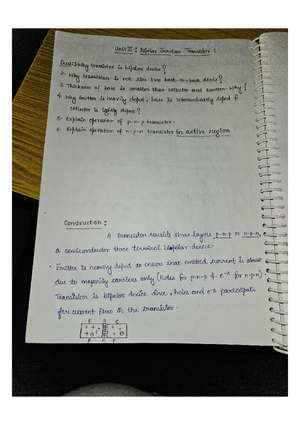 Unit III : Bipolar Junction Transistor :
Why transistor is bipolar device ?
2. Why transistor is not like two back-to-back diode ?
3. Thickness of base is smaller than collector and emitter. Why ?
4. Why Emitter is heavily doped, base is intermediately doped &
collector is lightly doped ?
5. Explain operation of p-n-p transistor.
6. Explain operation of n-p-n transistor in active region
Construction :
A transistor consists three layers p-n-p or n-p-n
a semiconductor three terminal bipolar device.
• Emitter is heavily doped to ensure that emitted current is almost
due to majority carriers only (holes for p-n-p & e-s for n-p-n)
Transistor is bipolar device since, holes and e-s participate
for current flow in the transistor.
E B C